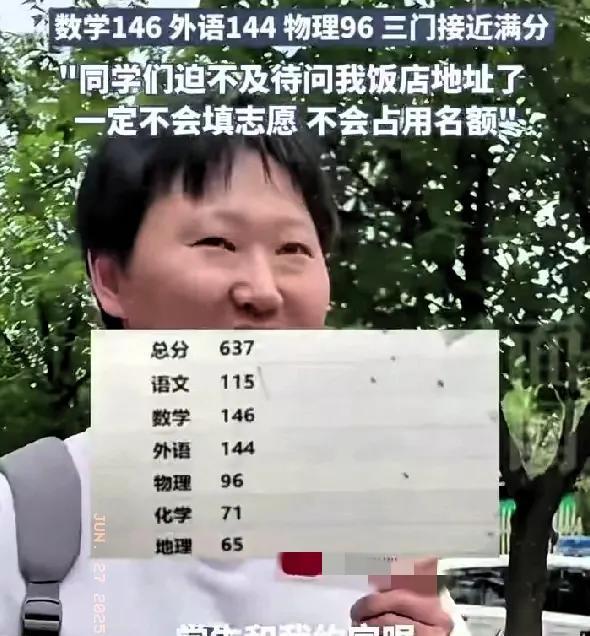 数学146 外语144 物理96 三门接近满分
"同学们迫不及待问我饭店地址了
一定不会填志愿 不会占用名额"
总分 637
语文 115
数学 146
外语 144
物理 96
化学 71
地理 65
JUN. 27 2025